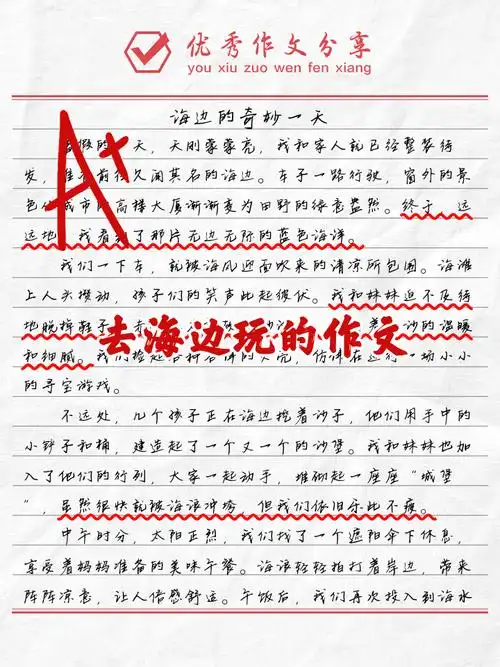 优秀作文分享
you xiu zuo wen fen xiang
A+
海边的奇妙一天
假的一天，天刚蒙蒙亮，我和家人就已经整装待
发，准备前往久闻其名的海边。车子一路行驶，窗外的景
色从城市的高楼大厦渐渐变为田野的绿意盎然。终于，远
远地，我看到了那片无边无际的蓝色海洋。
我们一下车，就被海风迎面吹来的清凉所包围。海滩
上人头攒动，孩子们的笑声此起彼伏。我和妹妹迫不及待
地脱掉鞋子，沙的温暖
去海边玩的作文
和细腻。我们捡起各种各样的贝壳，仿佛在进行一场小小
的寻宝游戏。
不远处，几个孩子正在海边挖着沙子，他们用手中的
小铲子和桶，建造起了一个又一个的沙堡。我和妹妹也加
入了他们的行列，大家一起动手，堆砌起一座座“城堡
”，虽然很快就被海浪冲垮，但我们依旧乐此不疲。
中午时分，太阳正烈，我们找了一个遮阳伞下休息，
享受着妈妈准备的美味午餐。海浪轻轻拍打着岸边，带来
阵阵凉意，让人倍感舒适。午饭后，我们再次投入到海水